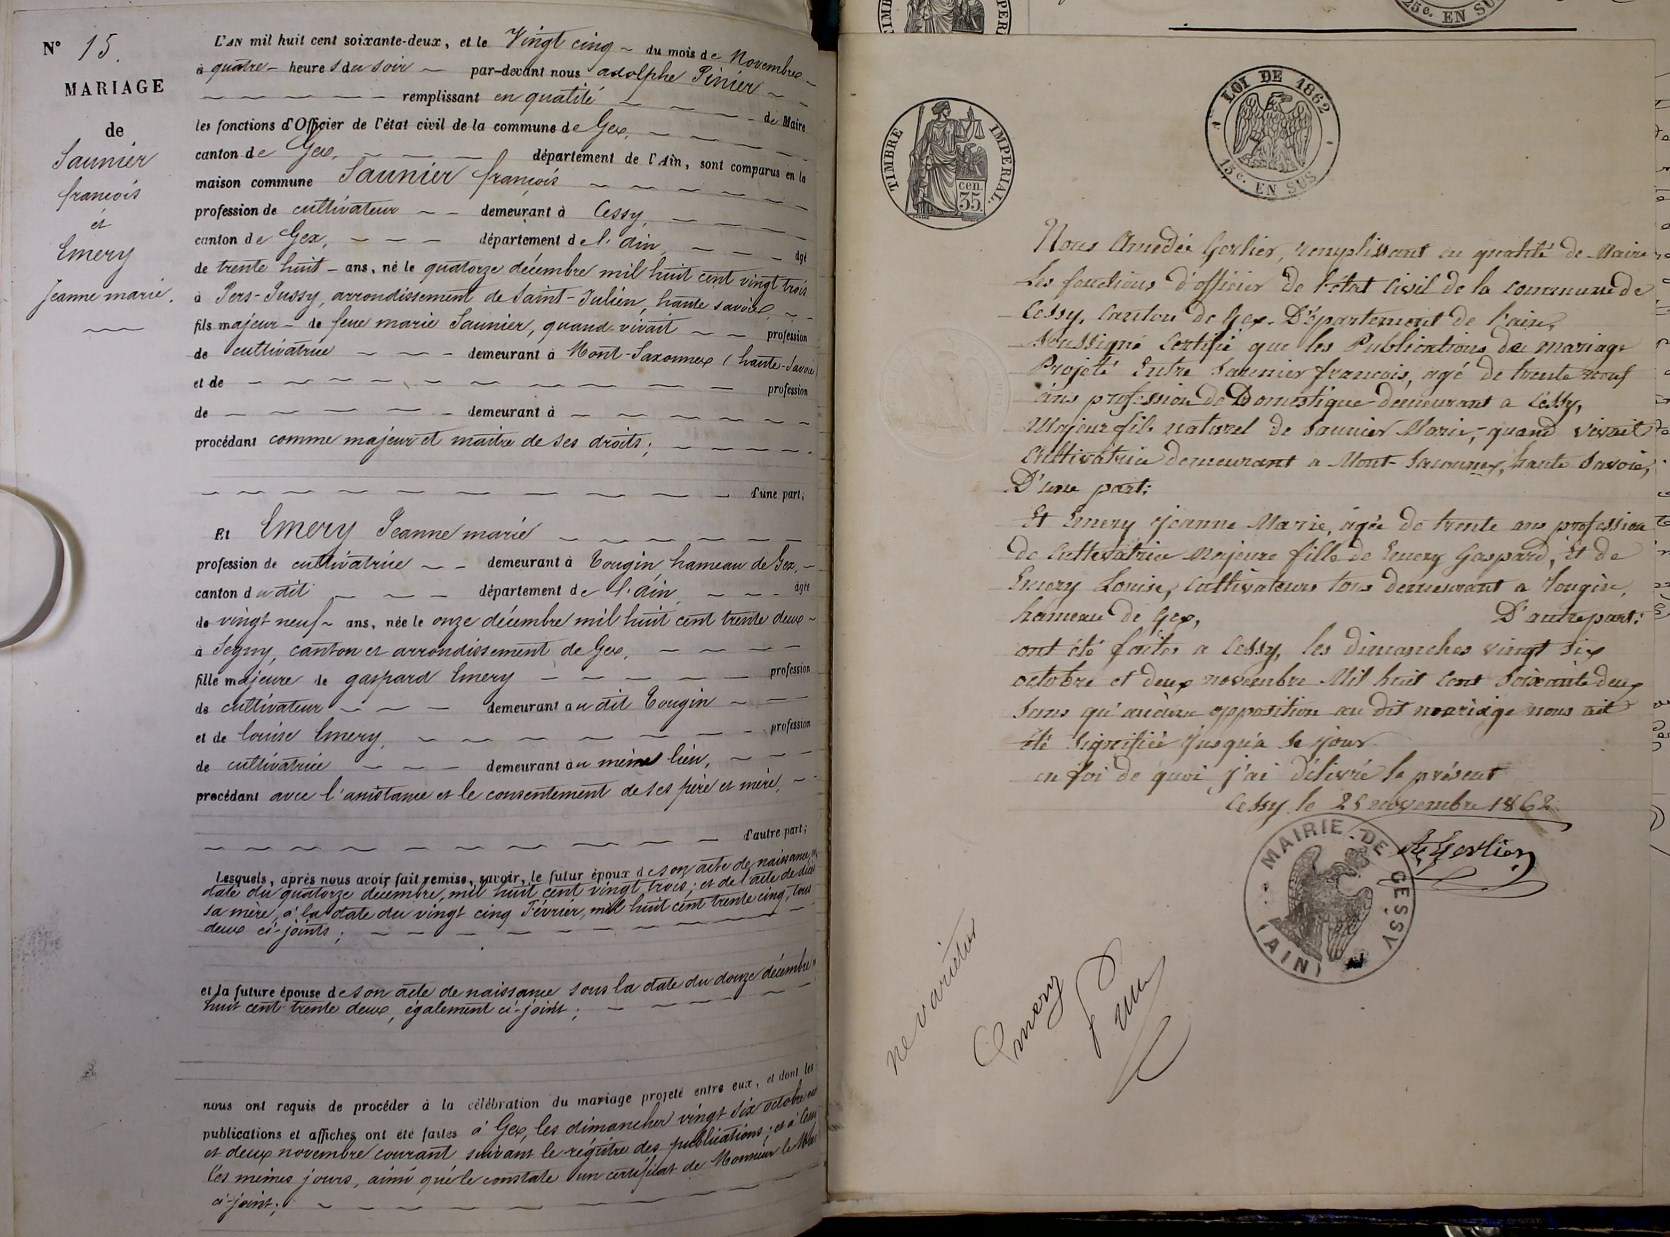 N° 15.
MARIAGE
de
Saunier
françois
et
Emery
Jeanne marie.
L'AN mil huit cent soixante-deux, et le Vingt cinq du mois de Novembre
à quatre heures du soir par-devant nous adolphe Pinier
remplissant en qualité de Maire
les fonctions d'Officier de l'état civil de la commune de Gex,
canton de Gex, département de l'Ain, sont comparus en la
maison commune Saunier françois
profession de cultivateur demeurant à Cessy,
canton de Gex, département de l'ain, âgé
de trente huit ans, né le quatorze décembre mil huit cent vingt trois
à Pers-Jussy, arrondissement de Saint-Julien, haute savoie,
fils majeur de feue marie Saunier, quand vivait profession
de cultivatrice demeurant à Mont-Saxonnex (haute-Savoie)
et de profession
de demeurant à
procédant comme majeur et maitre de ses droits;
d'une part;
Et Emery Jeanne marie
profession de cultivatrice demeurant à Tougin hameau de Gex,
canton du dit département de l'ain, âgée
de vingt neuf ans, née le onze décembre mil huit cent trente deux
à Segny, canton et arrondissement de Gex,
fille majeure de gaspard Emery profession
de cultivateur demeurant au dit Tougin
et de louise Emery, profession
de cultivatrice demeurant au même lieu,
procédant avec l'assistance et le consentement de ses père et mère,
d'autre part;
Lesquels, après nous avoir fait remise, savoir, le futur époux de son acte de naissance,
date du quatorze décembre, mil huit cent vingt trois; et de l'acte de décès
sa mère, à la date du vingt cinq Février, mil huit cent trente cinq, tous
deux ci-joints;
et la future épouse de son acte de naissance sous la date du douze décembre
huit cent trente deux, également ci-joint;
nous ont requis de procéder à la célébration du mariage projeté entre eux, et dont les
publications et affiches ont été faites à Gex, les dimanches vingt six octobre
et deux novembre courant suivant le régistre des publications; et à Cessy
les mêmes jours, ainsi que le constate un certificat de Monsieur le Maire
ci-joint;
TIMBRE IMPERIAL.
cen. 35.
LOI DE 1862
15c. EN SUS
25c. EN SUS
Nous Amédée Gerlier, remplissant en qualité de Maire
les fonctions d'officier de l'état civil de la commune de
Cessy, Canton de Gex. Département de l'ain,
soussigné Certifie que les Publications de mariage
Projeté Entre Saunier françois, agé de trente neuf
ans profession de Domestique demeurant a Cessy,
Majeur fils naturel de Saunier Marie, quand vivait
Cultivatrice demeurant a Mont-Saxonnex, haute Savoie,
D'une part;
Et Emery Jeanne Marie, agée de trente ans profession
de Cultivatrice Majeure fille de Emery Gaspard, Et de
Emery Louise, Cultivateurs tous demeurant a Tougin,
hameau de Gex, D'autre part;
ont été faites a Cessy, les dimanches vingt six
octobre et deux novembre Mil huit Cent Soixante deux
Sans qu'aucune opposition au dit mariage nous ait
été Signifiée jusqu'a Se jour.
en foi de quoi j'ai Délivré le présent
Cessy le 25 novembre 1862
A. Gerlier
MAIRIE DE CESSY
(AIN)
ne varietur
Emery